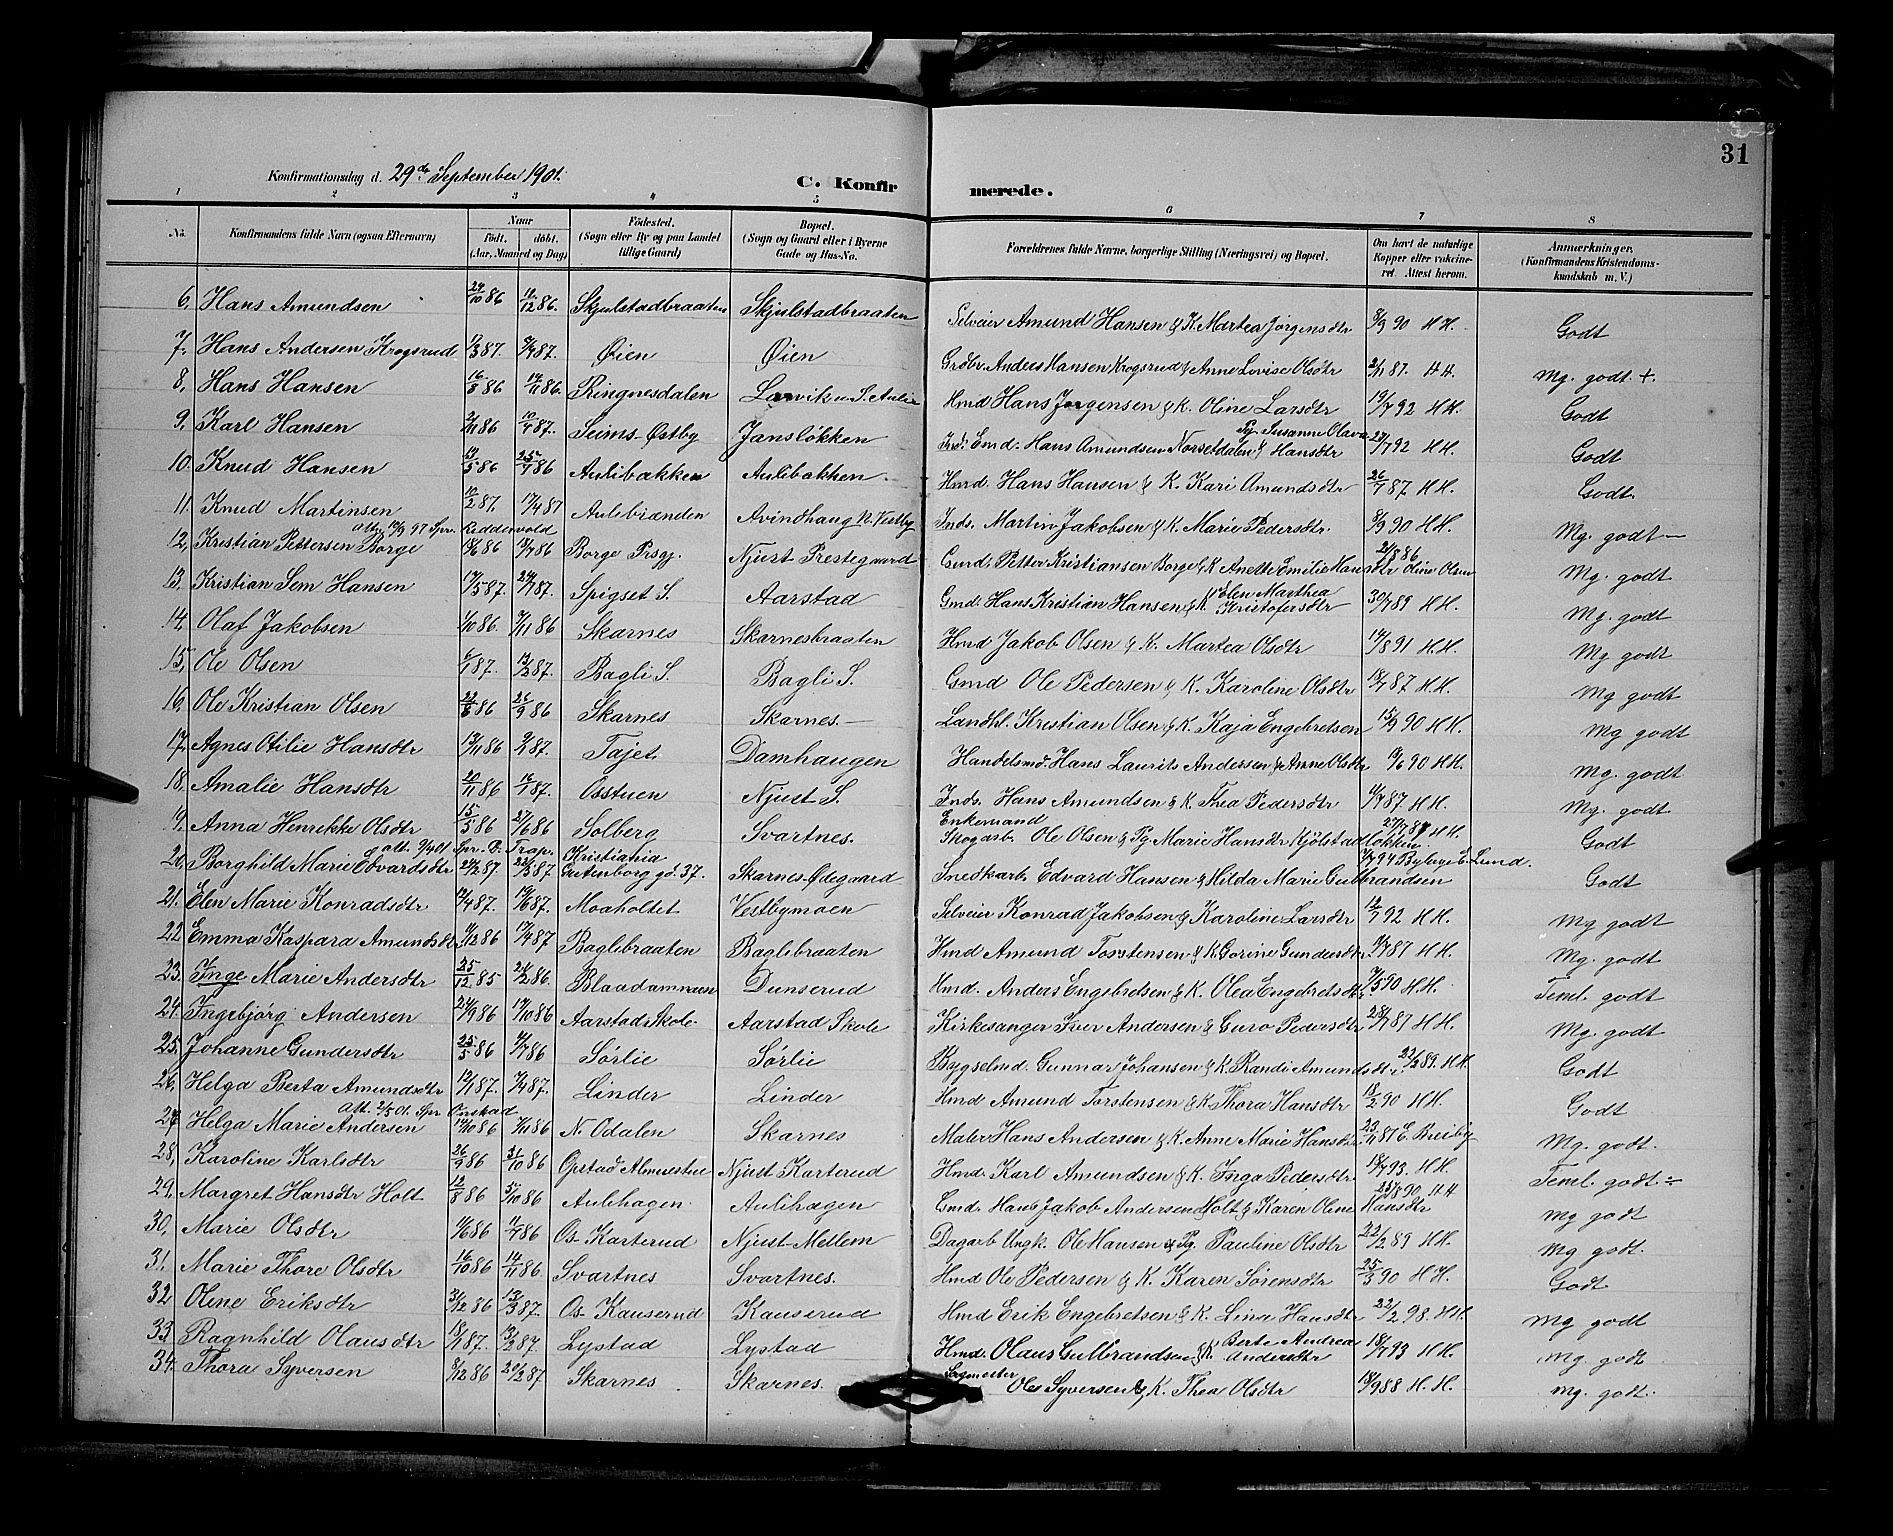 31
Konfirmationsdag d. 29de September 1901.
C. Konfirmerede.
1 2 3 4 5 6 7 8
No. Konfirmandens fulde Navn (ogsaa Efternavn) Naar født. døbt. (Aar, Maaned og Dag) Fødested. (Sogn eller By og paa Landet tillige Gaard) Bopæl. (Sogn og Gaard eller i Byerne Gade og Hus-No. Forældrenes fulde Navne, borgerlige Stilling (Næringsvei) og Bopæl. Om havt de naturlige Kopper eller vaccineret. Attest herom. Anmærkninger. (Konfirmandens Kristendomskundskab m. V.)
6, Hans Amundsen 24/10 86 Skjulstadbraaten Skjulstadbraaten Selveier Amund Hansen & K. Martea Jørgensdtr 8/9 90 H H. Godt
7, Hans Andersen Krogsrud Øien Øien Grdbr. Anders Hansen Krogsrud & Anne Lovise Olsdtr 2/11 87. H.H. Mg. godt +.
8, Hans Hansen 14/11 86. Ringnesdalen Larvik u. S. Aulie Hmd Hans Jørgensen & K. Oline Larsdtr 19/7 92 H H. Godt
9, Karl Hansen Seims-Østby Jansløkken Ind. Emd. Hans Amundsen Norsetdalen & Pg. Susanne Olava Hansdtr 29/7 92 H H. Godt
10. Knud Hansen 25/7 86 Aulibakken Aulibakken. Hmd. Hans Hansen & K. Kari Amundsdtr 26/7 87 H H. Godt
11. Knud Martinsen 17/4 87 Aulebrænden Avindhaug N. Vestby Inds. Martin Jakobsen & K. Marie Pedersdtr. 8/9 90 H H. Mg. godt —
12, Kristian Pettersen Borge 18/7 86 Borge Prsgj. Njust Prestegaard Gmd. Petter Kristiansen Borge & K. Anette Emilie Hansdtr Oline Olsen Mg. godt
13. Kristian Sem Hansen 17/5 87. Spigset S. Aarstad Gmd. Hans Kristian Hansen & K. Elen Marthea Kristofersdtr 30/7 89 H H. Mg. godt
14, Olaf Jakobsen 7/11 86 Skarnes Skarnesbraaten Hmd Jakob Olsen & K. Martea Olsdtr 14/8 91 H.H. Mg godt
15, Ole Olsen 13/2 87. Bagli S. Bagli S. Gmd Ole Pedersen & K. Karoline Olsdtr 18/7 87 H H. Mg godt
16, Ole Kristian Olsen 26/9 86 Skarnes Skarnes.— Landhl. Kristian Olsen & K. Kaja Engebretsen 15/9 90 H H. Mg godt
17, Agnes Otilie Hansdtr 13/11 86 Tajet Damhaugen Handelsmd. Hans Laurits Andersen & Anne Olsdtr 90 H H. Mg. godt
18, Amalie Hansdtr 20/11 86 Osstuen Njust S. Inds. Hans Amundsen & K. Thea Pedersdtr 87 H H. Mg. godt
19, Anna Henrikke Olsdtr 15/5 86 27/6 86 Solberg Svartnes. Enkemand Skogarb. Ole Olsen & Pg. Marie Hansdtr Kjølstadløkken 27/7 87 H H. Godt
20. Borghild Marie Edvardsdtr 24/2 87. Kristiania Gutenborg gd. 37. Skarnes-Ødegaard Snedkarb. Edvard Hansen & Hilda Marie Gulbrandsen Godt
21. Elen Marie Konradsdtr 87. Moaholtet Vestbymoen Selveier Konrad Jakobsen & Karoline Larsdtr 12/7 92 H H. Mg godt
22 Emma Kaspara Amundsdtr 17/4 87 Baglibraaten Baglebraaten Hmd Amund Torstensen & K. Gorine Gundersdtr. 87 H H. Mg. godt
23. Inge Marie Andersdtr 25/12 85 21/2 86. Blaadammen Dunserud Hmd. Anders Engebretsen & K. Olea Engebretsdtr 90 H H. Teml. godt
24. Ingebjørg Andersen 24/9 86 17/10 86 Aarstad Skole Aarstad Skole Kirkesanger Iver Andersen & Guro Pedersdtr 28/7 87 H H. Mg. godt
25. Johanne Gundersdtr 25/5 86 4/7 86 Sørlie Sørlie Bygselmd. Gunnar Johansen & K. Randi Amundsdtr. 22/2 89. H H. Godt
26, Helga Berta Amundsdtr 12/1 87. 87. Linder Linder Hmd Amund Torstensen & K. Thora Hansdtr 18/2 90 H H. Godt
Att. 2/5 01. Spr Onstad
27, Helga Marie Andersen 14/10 86 7/11 86 N. Odalen Skarnes Maler Hans Andersen & K. Anne Marie Hansdtr. 23/11 87 E. Breiby Mg. godt.
28, Karoline Karlsdtr 26/9 86 31/10 86 Opstad Almuestue Njust Karterud Hmd. Karl Amundsen & K. Inga Pedersdtr. 18/7 93. H H. Teml. godt ÷
29, Margret Hansdtr Holt 12/8 86 5/10 86 Aulihagen. Aulihagen Emd. Hans Jakob Andersen Holt & Karen Oline Hansdtr 25/8 90 H H Mg godt
30, Marie Olsdtr Os-Karterud Njust-Mellem Dagarb Ungk. Ole Hansen & Pg. Pauline Olsdtr 22/2 89 H H. Mg godt.
31. Marie Thore Olsdtr 16/10 86 14/11 86. Svartnes Svartnes. Hmd Ole Pedersen & K. Karen Sørensdtr 25/3 90 H H. Godt
32 Oline Eriksdtr 31/12 86 13/3 87. Os-Kauserud Kauserud Hmd Erik Engebretsen & K. Lina Hansdtr 22/2 98. H H. Mg godt
33 Ragnhild Olausdtr 18/1 87. 13/2 87. Lystad Lystad Hmd. Olaus Gulbrandsen & K. Berte Andrea Andersdtr 18/7 93 H H. Mg. godt
34. Thora Syversen 8/12 86 21/2 87 Skarnes. Skarnes. Sagmester Ole Syversen & K. Thea Olsdtr 18/9 88 H. H. Mg. godt.